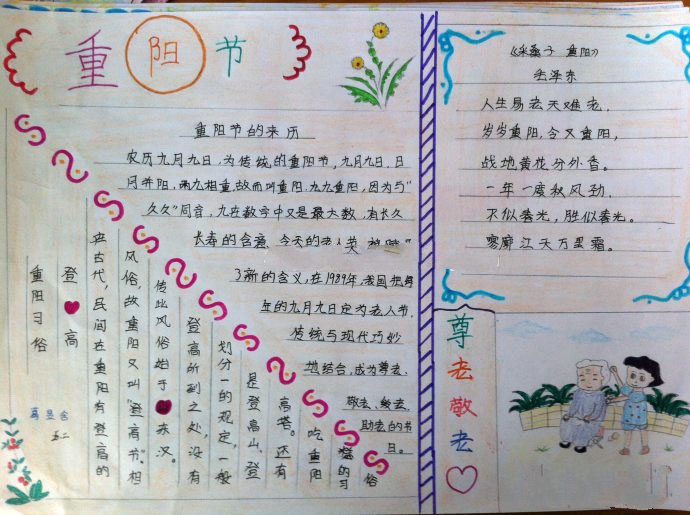 重阳节
重阳节的来历
农历九月九日，为传统的重阳节，九月九日，日
月并阳，两九相重，故而叫重阳，九九重阳，因为与“
久久”同音，九在数字中又是最大数，有长久
长寿的含意，今天的
了新的含义，在1989年，我国把每
年的九月九日定为老人节，
传统与现代巧妙
地结合，成为尊老、
敬老、爱老、
助老的节
日。
重阳习俗
登高
在古代，民间在重阳有登高的
风俗，故重阳又叫“登高节”。相
传此风俗始于东汉。
登高所到之处，没有
划分一的规定，一般
是登高山、登
高塔。还有
吃重阳
糕的习
俗
五二
《采桑子 重阳》
毛泽东
人生易老天难老，
岁岁重阳，今又重阳，
战地黄花分外香。
一年一度秋风劲，
不似春光，胜似春光。
寥廓江天万里霜。
尊老敬老